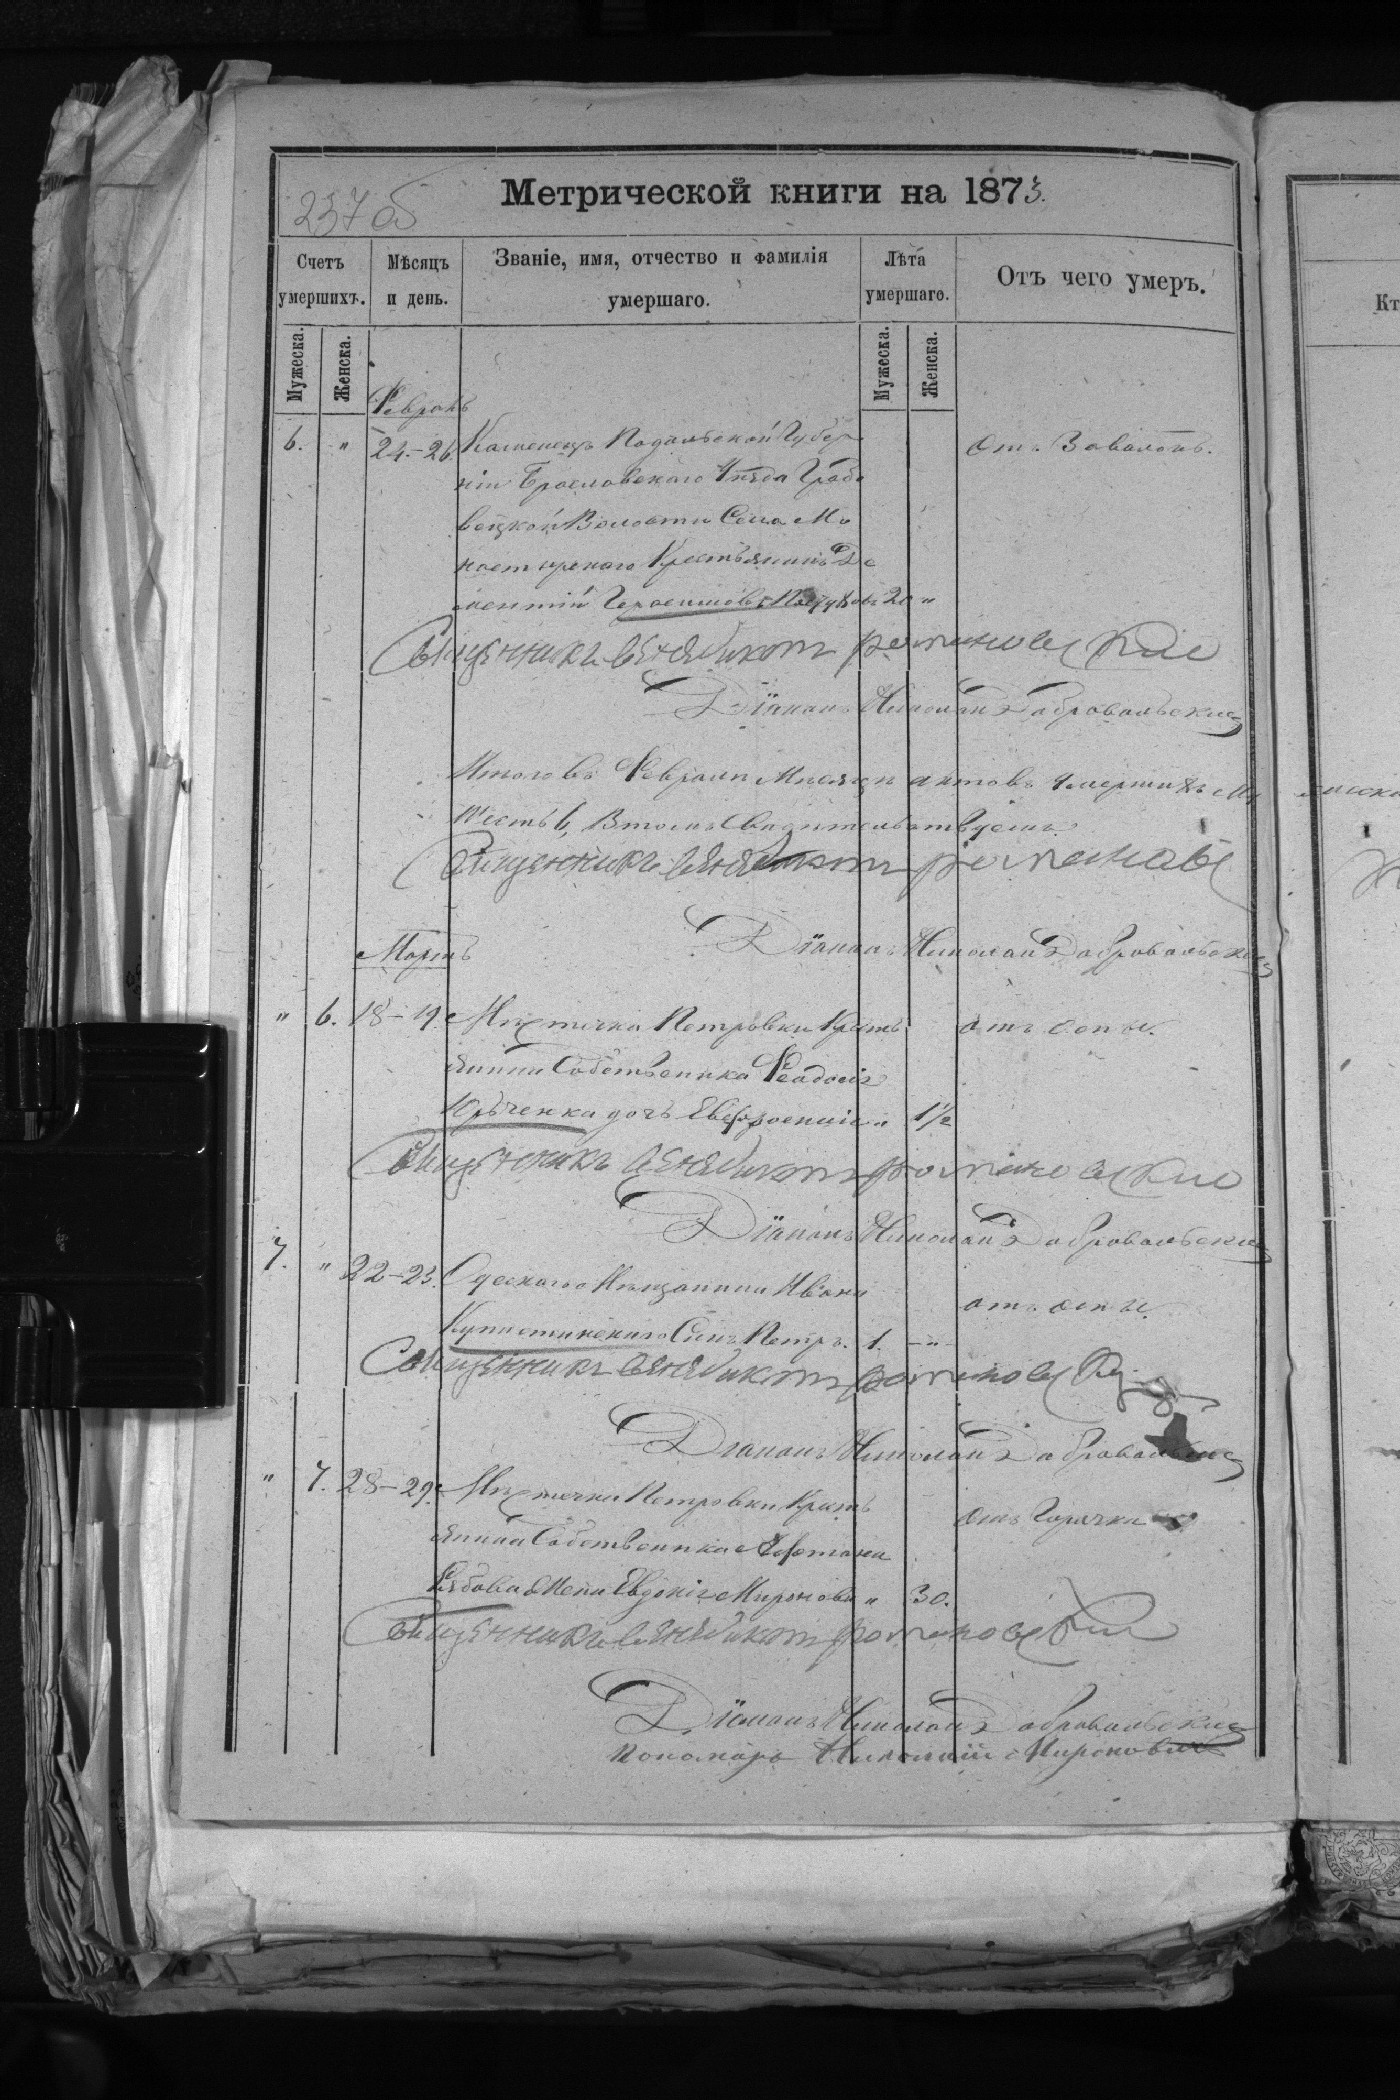 Метрической книги на 1873.
237 об
Счетъ умершихъ.
Мѣсяцъ и день.
Званіе, имя, отчество и фамилія умершаго.
Лѣта умершаго.
Отъ чего умеръ.
Мужеска.
Женска.
Мужеска.
Женска.
Кт
Февраль
6. " 24.-26. Каменецъ Подольской Губер отъ
ніи Браславскаго Уѣзда Грабо
вецкой Волости Села Мо
настырскаго Крестьянинъ До
ментій Герасимовъ 20 "
Священникъ Венедиктъ Романовскій
Діаконъ Николай Добровольскій
Итого въ Февралѣ Мѣсяцѣ актовъ умершихъ Му
Шесть 6, Въ томъ Свидѣтельствуемъ.
Священникъ Венедиктъ Романовс
Діаконъ Николай Добровольскій
Мартъ
" 6. 18-19. Мѣстечка Петровки Кресть отъ оспы.
янина Собственника Феодосія
Юрченка дочь Евфросинія " 1½
Священникъ Венедиктъ Романовскій
Діаконъ Николай Добровольскій
7. " 22-23. Одескаго Мѣщанина Ивана отъ оспы
Сынъ Петръ. 1. -"-
Священникъ Венедиктъ Романовскій
Діаконъ Николай Добровольскій
" 7. 28-29. Мѣстечка Петровки Кресть отъ Горячки
янина Собственника
Жена Евдокія Миронова " 30.
Священникъ Венедиктъ Романовскій
Діаконъ Николай Добровольскій
Пономарь Миронович